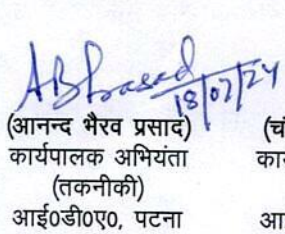 ABPrasad
18/07/24
(आनन्द भैरव प्रसाद)
कार्यपालक अभियंता
(तकनीकी)
आई0डी0ए0, पटना